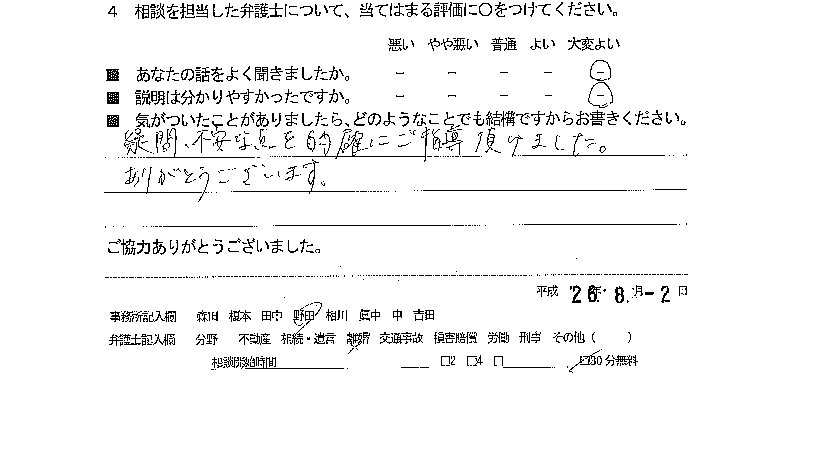 4 相談を担当した弁護士について、当てはまる評価に○をつけてください。
悪い やや悪い 普通 よい 大変よい
■ あなたの話をよく聞きましたか。 - - - - -
■ 説明は分かりやすかったですか。 - - - - -
■ 気がついたことがありましたら、どのようなことでも結構ですからお書きください。
疑問、不安な点を的確にご指導頂けました。
ありがとうございます。
ご協力ありがとうございました。
平成 '26年 8.月-2日
事務所記入欄 森田 榎本 田中 野田 相川 眞中 中 吉田
弁護士記入欄 分野 不動産 相続・遺言 離婚 交通事故 損害賠償 労働 刑事 その他( )
相談開始時間 □2 □4 □ □30分無料